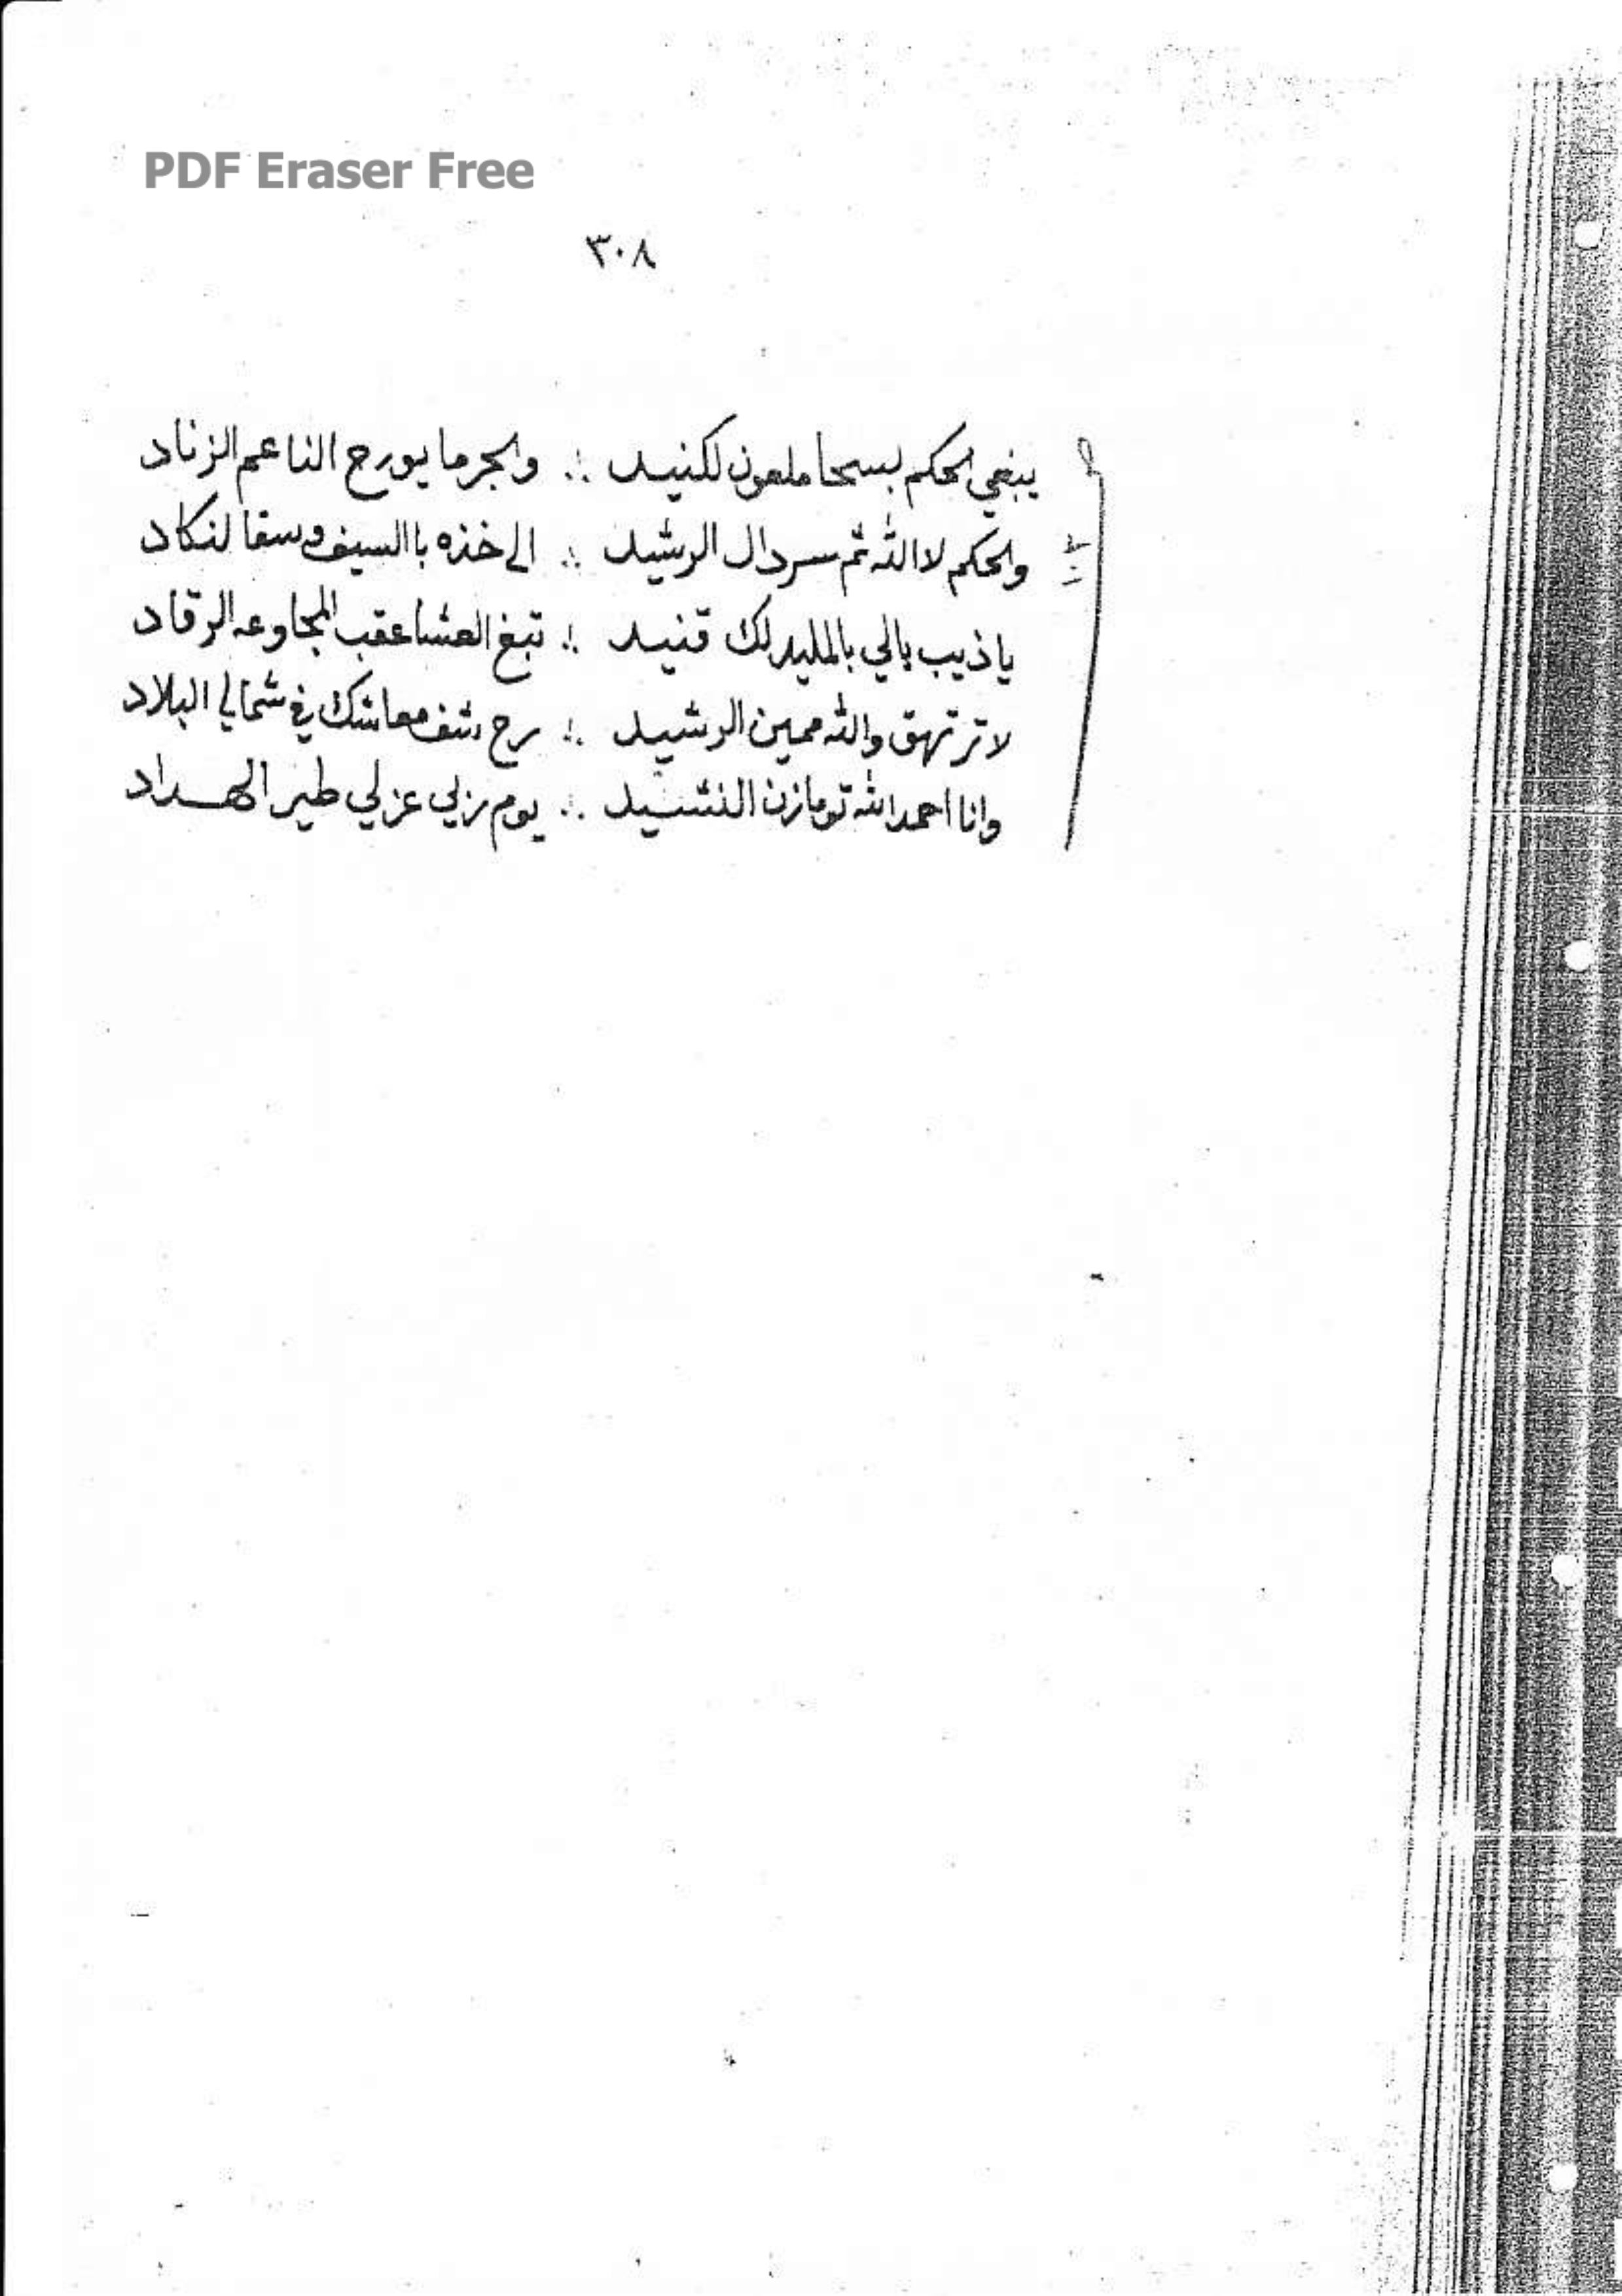 PDF Eraser Free
٣٠٨
يبغي الحكم بسحا ملعون لكنيد ∴ والجر ما يورح الناعم الزناد
والحكم لا الله ثم سردال الرشيد ∴ الى خذه باالسيف وسقا لنكاد
يا ذيب يالي بالمليد لك قنيد ∴ تبغ العشا عقب المجاوعه الرقاد
لا ترتهق والله ممين الرشيد ∴ رح شف معاشك في شمالي البلاد
وانا احمد الله توما زن النشيد ∴ يوم نزلي عزلي طير الهداد